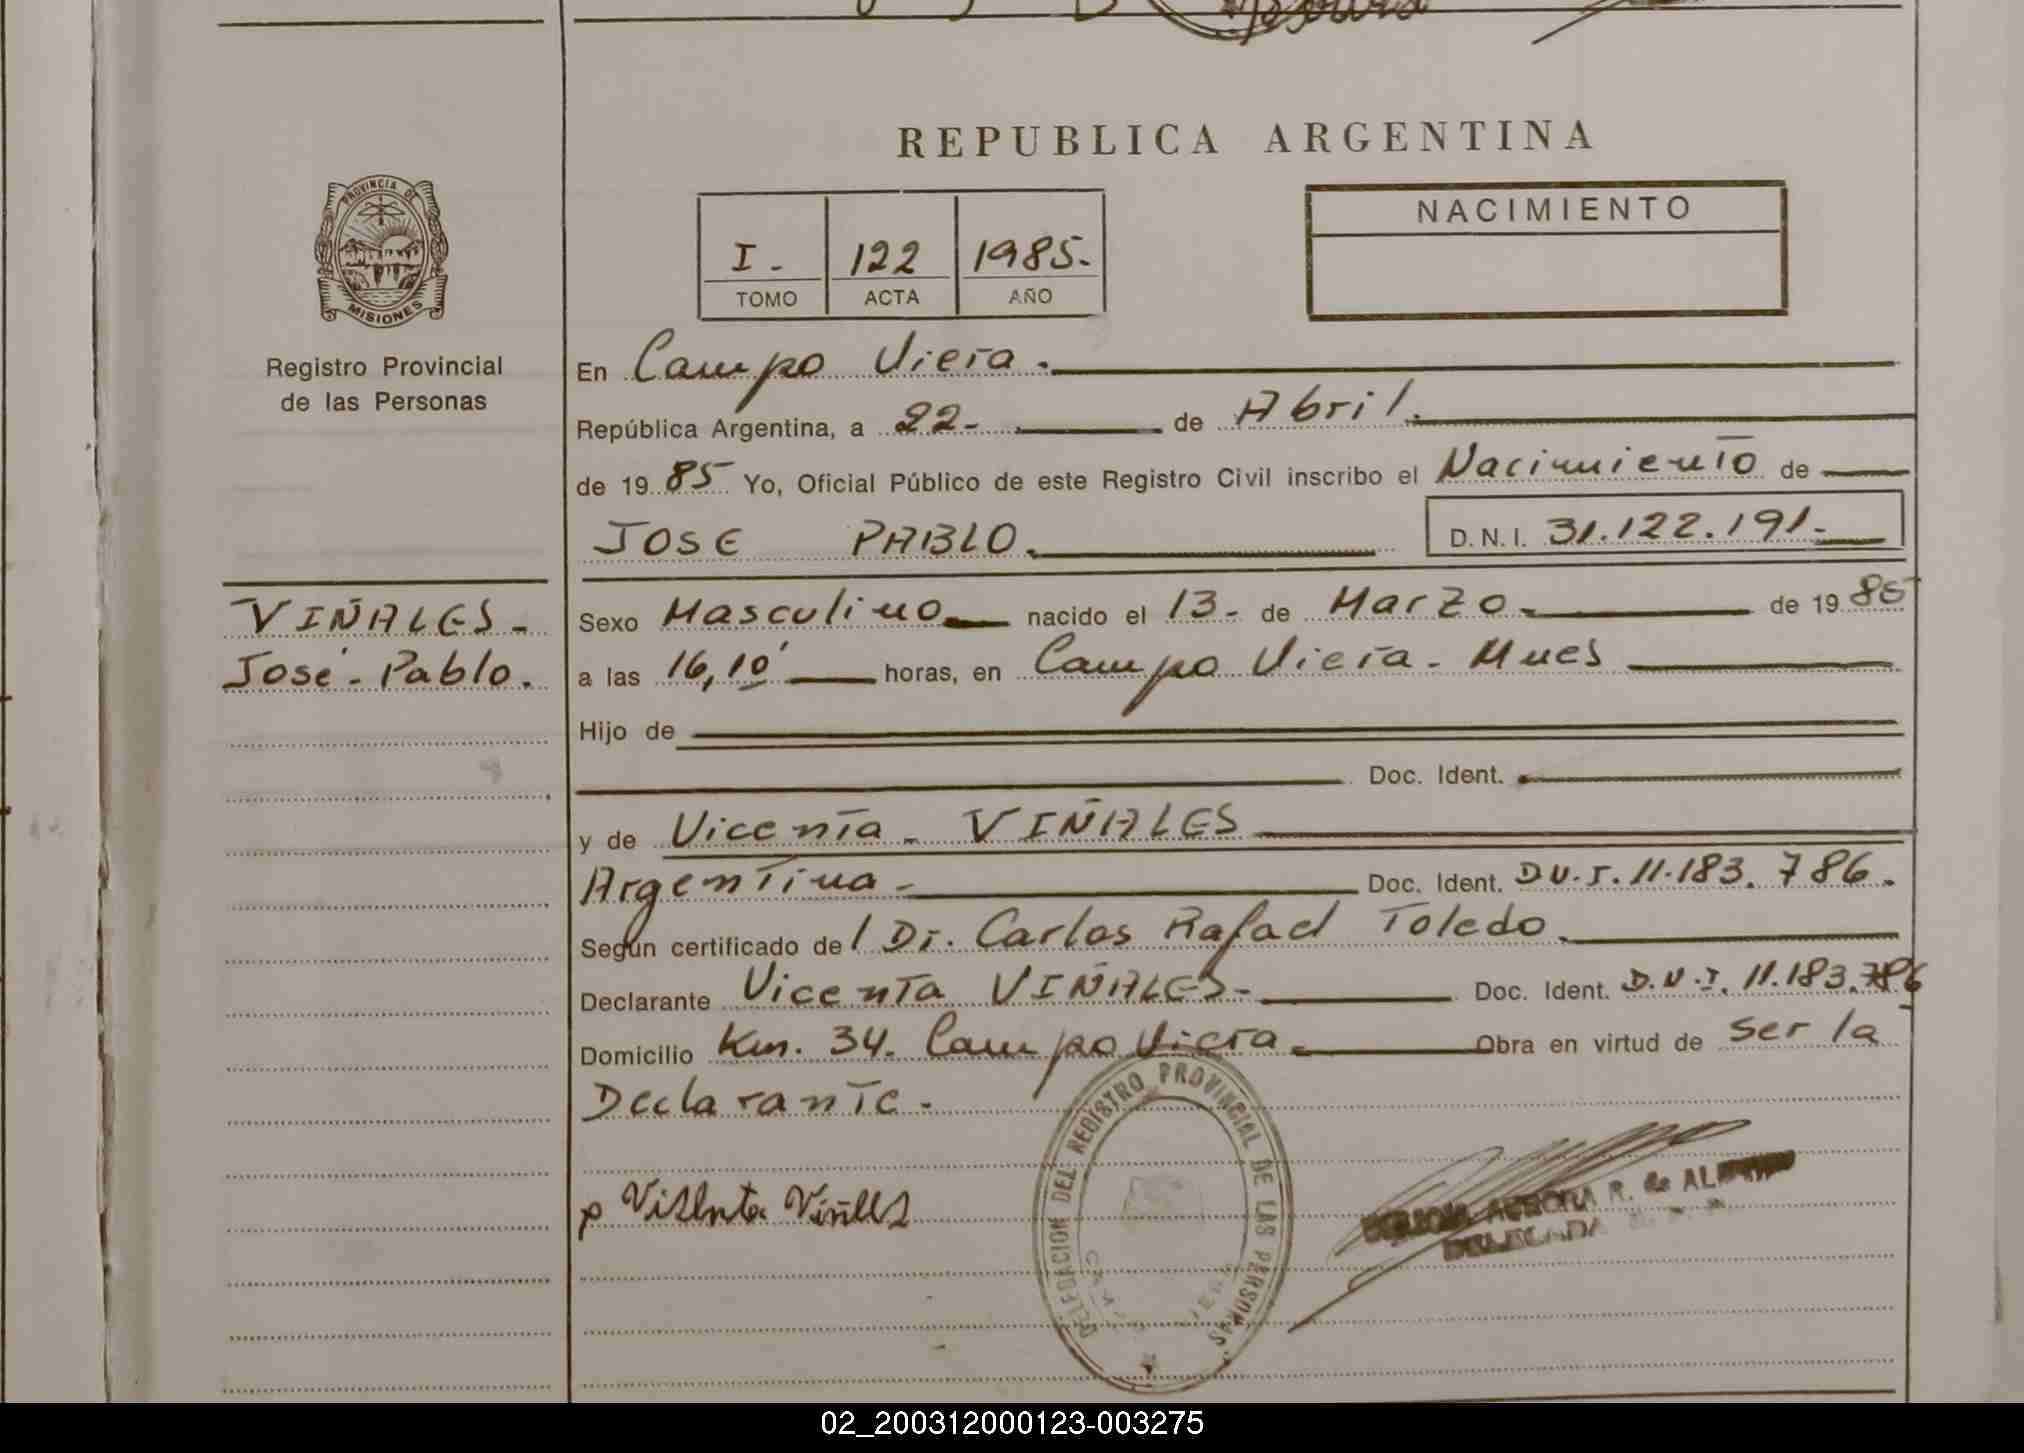 REPUBLICA ARGENTINA
PROVINCIA DE
MISIONES
Registro Provincial
de las Personas
I - 122 1985.-
TOMO ACTA AÑO
NACIMIENTO
En Campo Viera.
República Argentina, a 22- de Abril.
de 1985 Yo, Oficial Público de este Registro Civil inscribo el Nacimiento de
JOSE PABLO. D.N.I. 31.122.191.-
VIÑALES-
José-Pablo.
Sexo Masculino nacido el 13- de Marzo- de 1985
a las 16,10' horas, en Campo Viera- Mnes
Hijo de
Doc. Ident.
y de Vicenta - VIÑALES
Argentina- Doc. Ident. D.N.I. 11.183.786.
Según certificado del Dr. Carlos Rafael Toledo.
Declarante Vicenta VIÑALES- Doc. Ident. D.N.I. 11.183.786
Domicilio Km. 34. Campo Viera. Obra en virtud de ser la
Declarante.
DELEGACION DEL REGISTRO PROVINCIAL DE LAS PERSONAS
R. de
DELEGADA
02_200312000123-003275